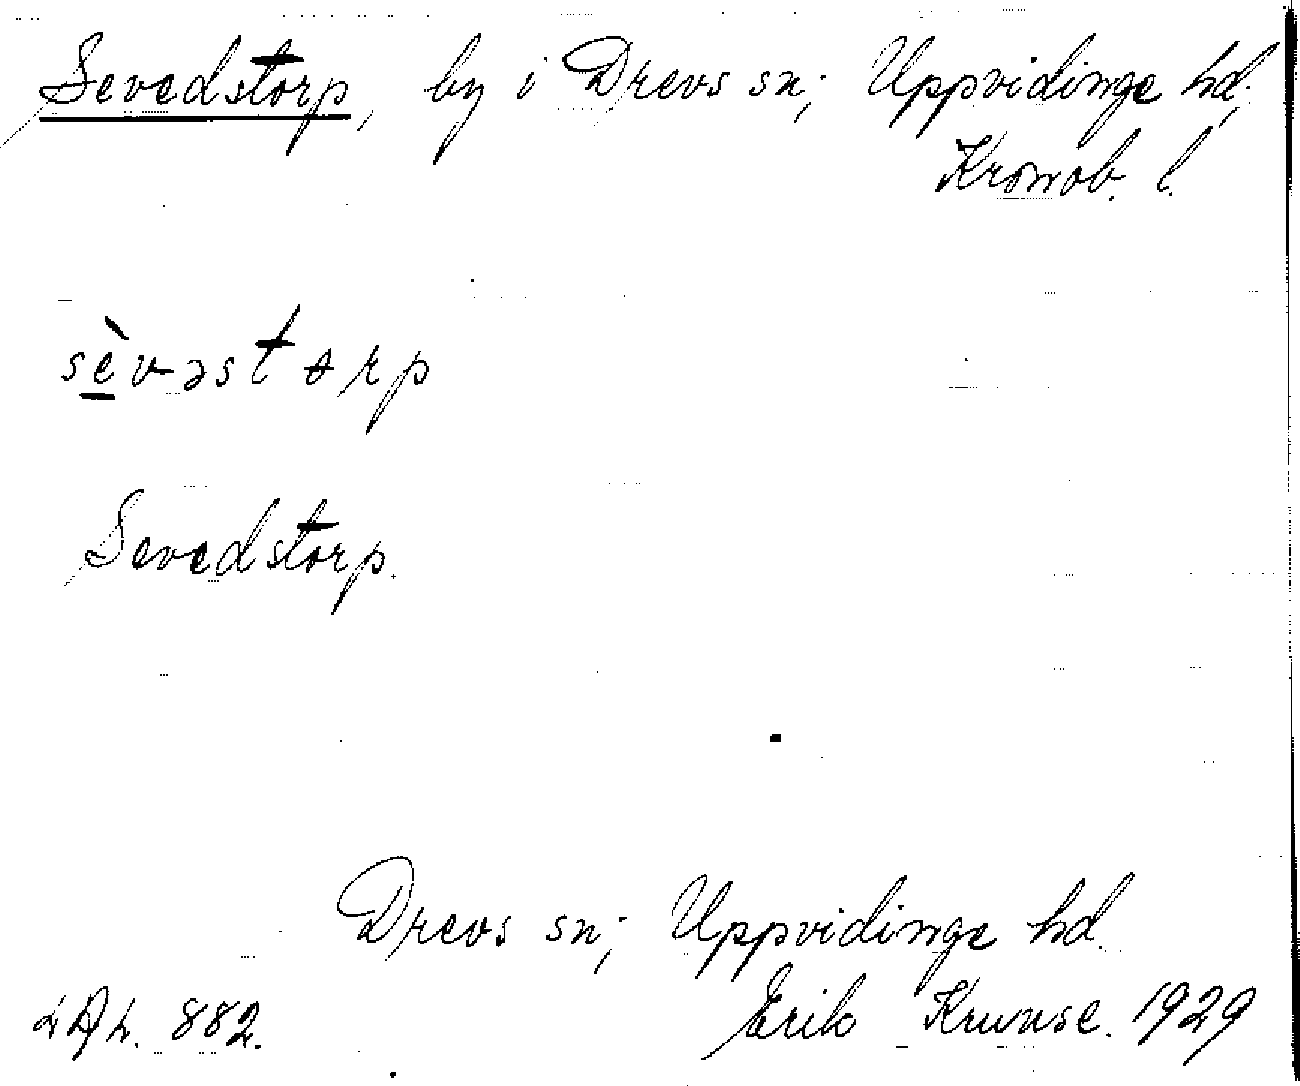 Sevedstorp, by i Drevs sn; Uppvidinge hd,
Kronob. l.
sèvəstɵrp
Sevedstorp.
Drevs sn; Uppvidinge hd.
882. Erik Kruuse. 1929